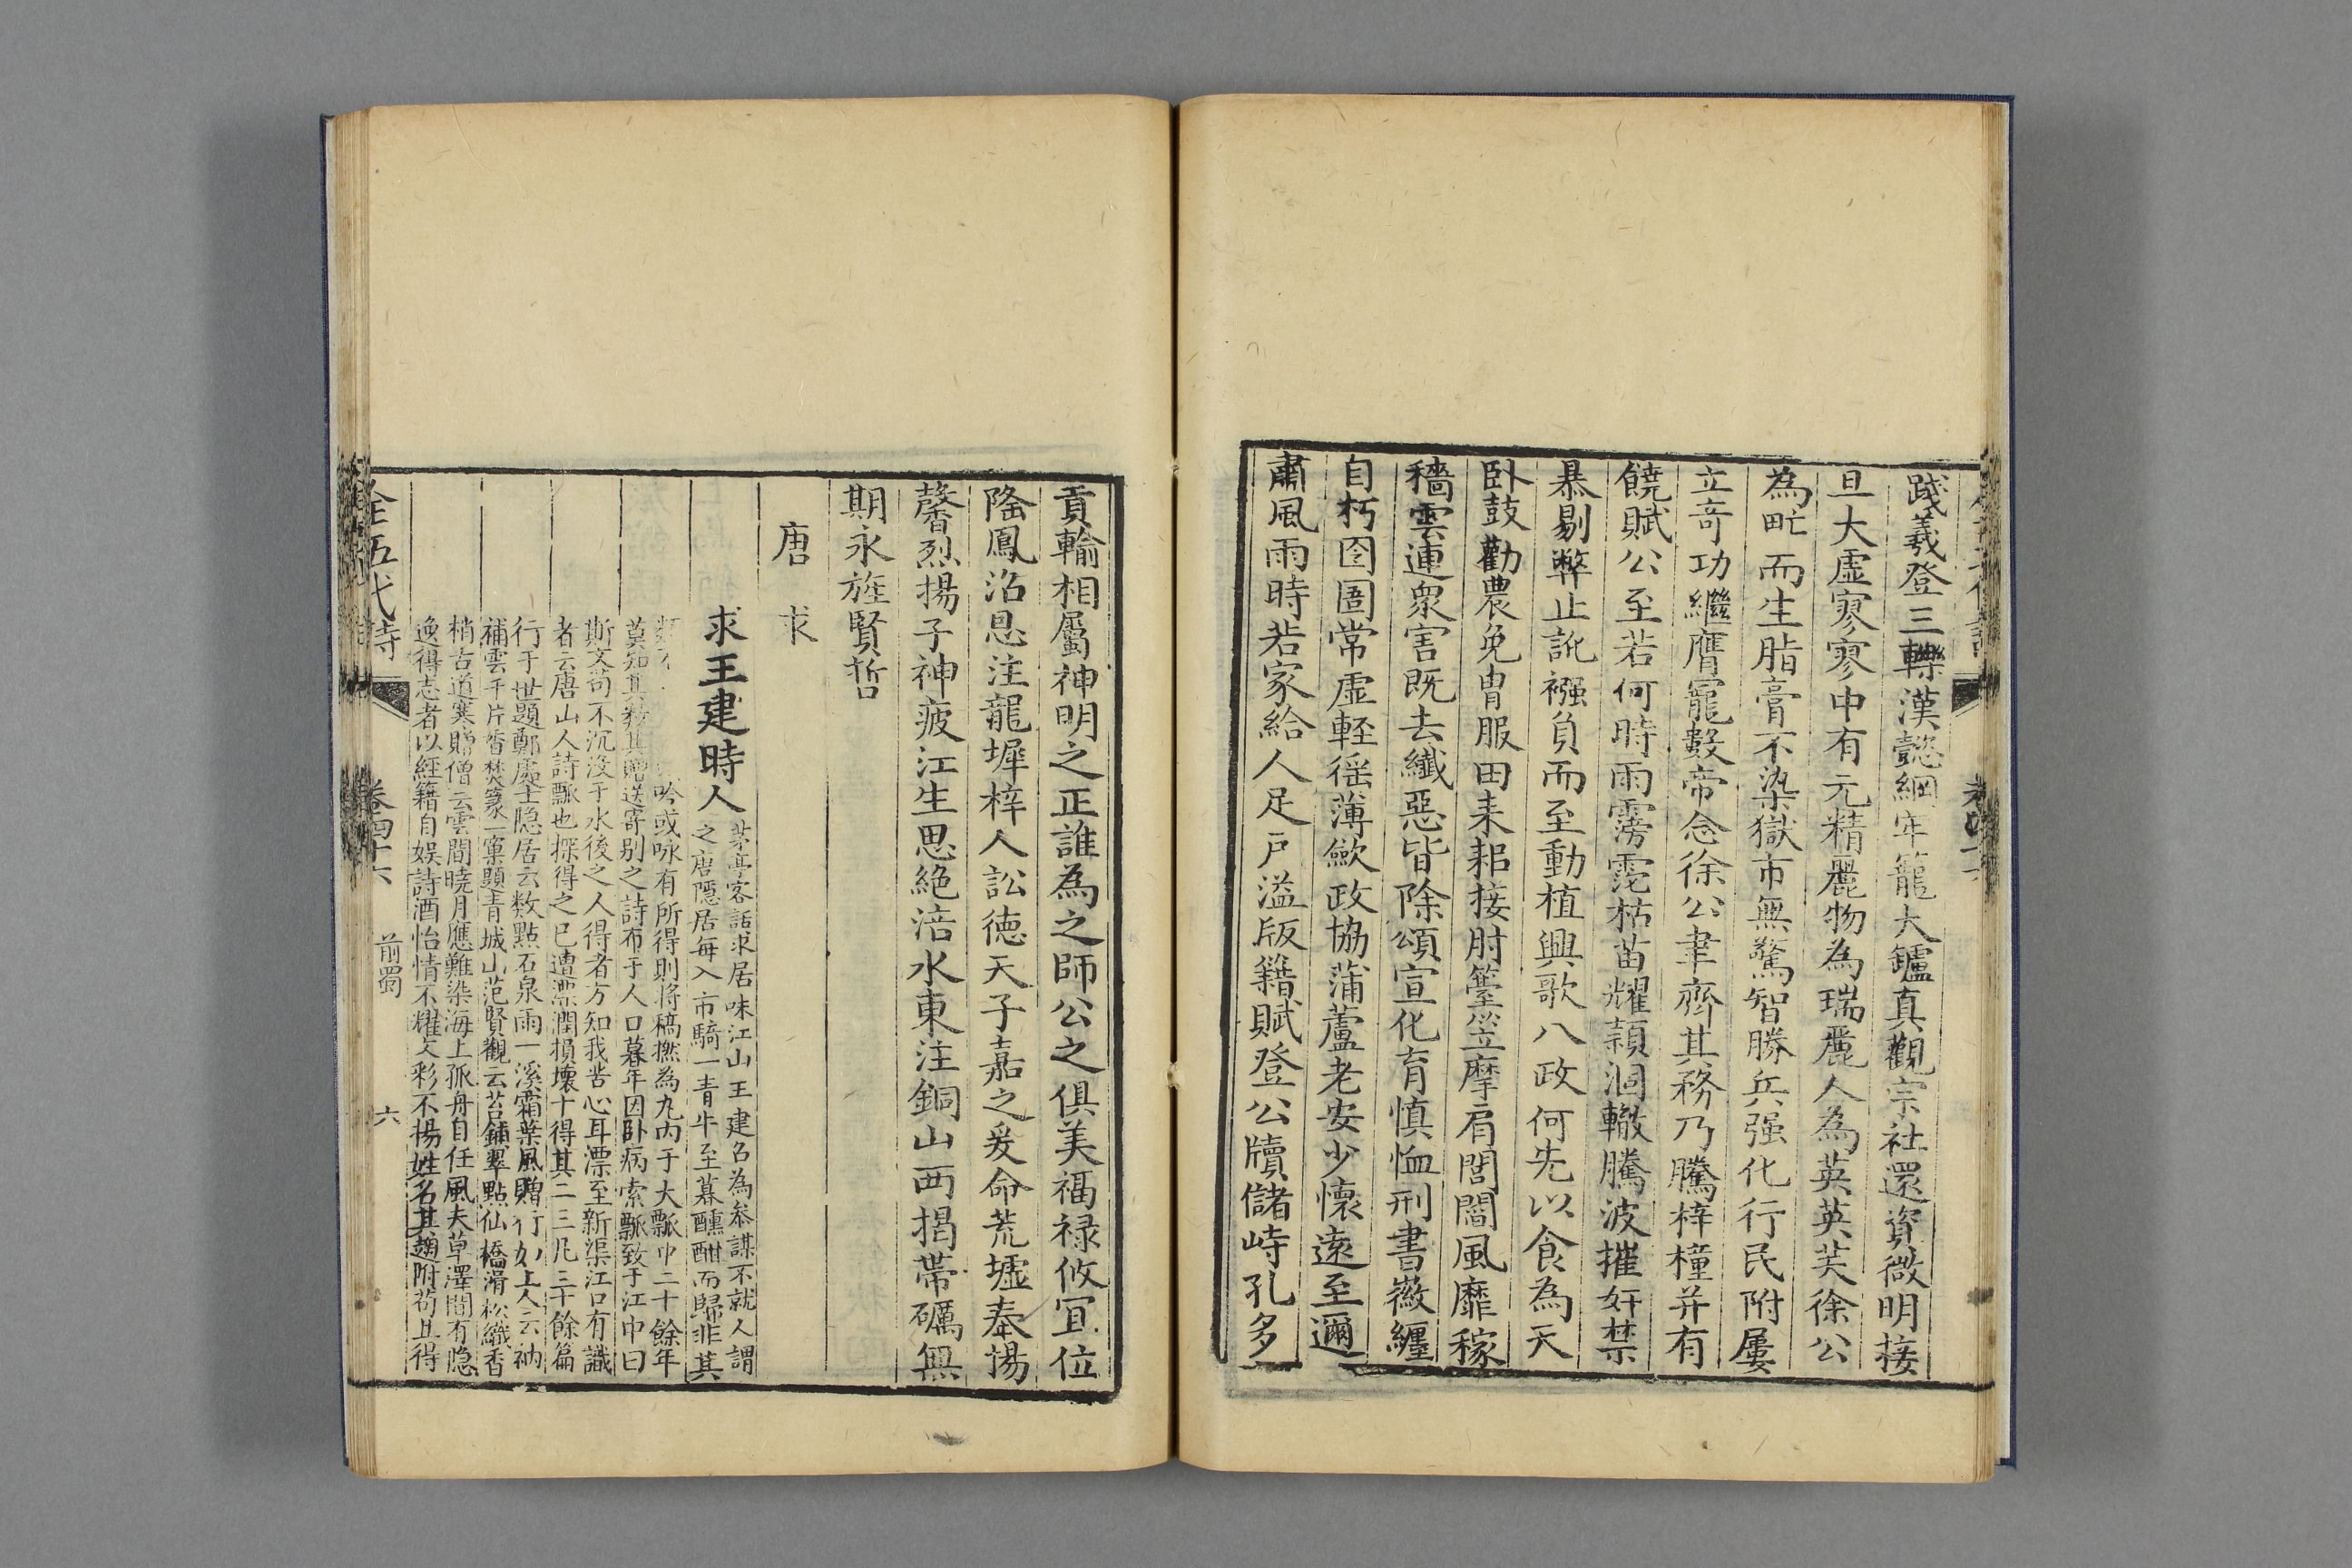 踐羲登三轢漢懿綱牢籠大鑪真觀宗社還資微明接
旦大虛寥寥中有元精麗物為瑞麗人為英英芙徐公
為甿而生脂膏不染獄市無驚智勝兵强化行民附屢
立竒功繼膺寵數帝念徐公聿齊其務乃騰梓橦并有
饒賦公至若何時雨霶霑枯苗耀頴涸轍騰波摧奸禁
暴剔弊止訛襁負而至動植興歌八政何先以食為天
卧鼓勸農免胄服田耒耜接肘簦笠摩肩閭閻風靡稼
穡雲連衆害既去纖惡皆除頌宣化育慎恤刑書徽纆
自朽囹圄常虛輕徭薄歛政協蒲蘆老安少懷遠至邇
肅風雨時若家給人足戶溢版籍賦登公牘儲峙孔多
貢輸相屬神明之正誰為之師公之俱美福禄攸宜位
隆鳳沼恩注龍墀梓人訟德天子嘉之爰命荒墟奉揚
馨烈揚子神疲江生思絶涪水東注銅山西揭帶礪無
期永旌賢哲
唐求
求王建時人
茅亭客話求居味江山王建召為叅謀不就人謂
之唐隱居每入市騎一青牛至暮醺酣而歸非其
吟或咏有所得則將稿撚為丸内于大瓢中二十餘年
莫知其 其贈送寄别之詩布于人口暮年因卧病索瓢致于江中曰
斯文苟不沉没于水後之人得者方知我苦心耳漂至新渠江口有識
者云唐山人詩瓢也探得之已遭漂潤損壞十得其二三凡三十餘篇
行于世題鄭處士隐居云数點石泉雨一溪霜葉風贈行如上人云衲
補雲千片香焚篆一窠題青城山范賢觀云苔鋪翠點仙橋滑松織香
梢古道寒贈僧云雲間曉月應難染海上孤舟自任風夫草澤間有隐
逸得志者以經籍自娱詩酒怡情不耀文彩不揚姓名其趨附苟且得
全五代詩 卷四十六 前蜀 六